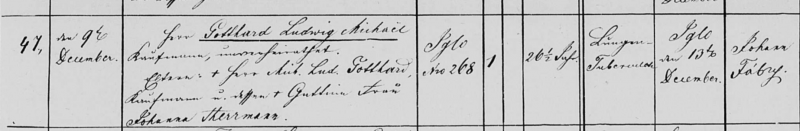 47,
den 9te
December.
Herr Gotthard Ludwig Michael
Kaufmann, unverheirathet.
Eltern: + Herr Mich. Lud. Gotthard,
Kaufmann u. dessen + Gattin Frau
Johanna Herrmann.
Iglo
Nro 268
1
26½ Jah.
Lungen-
Tuberculose
Iglo
den 13te
December.
Johann
Fábry.